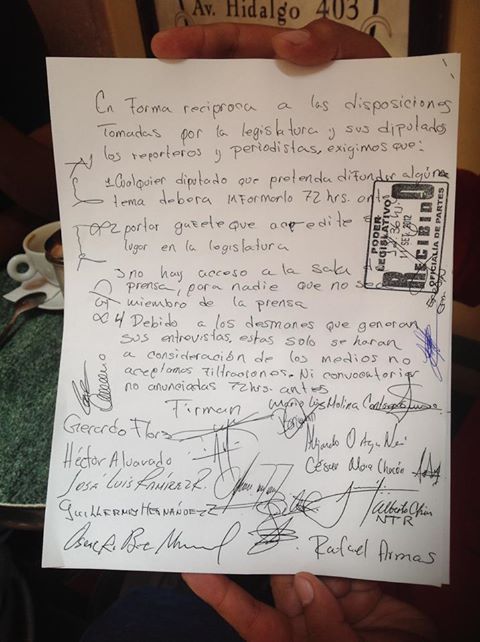 Av. Hidalgo 403
En Forma reciproca a las disposiciones
tomadas por la legislatura y sus diputados
los reporteros y periodistas, exigimos que:
1 Cualquier diputado que pretenda difundir algún
tema debera informarlo 72 hrs. ant
2 portar gafete que acredite
lugar en la legislatura
3 no hay acceso a la sala
prensa, para nadie que no s
miembro de la prensa
4 Debido a los desmanes que generan
sus entrevistas, estas solo se haran
a consideración de los medios no
aceptamos filtraciones. Ni convocatorias
no anunciadas 72hrs. antes
PODER
LEGISLATIVO
11 SEP. 2012
RECIBIDO
OFICIALIA DE PARTES
Firman
Mario Luis Molina
Gerardo Flores
Alejandro O
Héctor Alvarado
César
José Luis RAMIREZ R.
GUILLERMO HERNANDEZ
Alberto
NTR
Rafael Armas